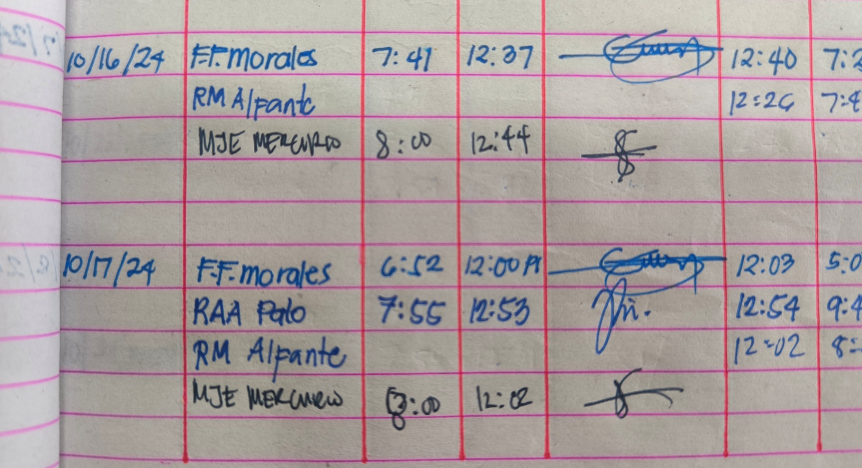 10/16/24 F.F. morales 7:41 12:37 12:40
RM Alpante 12:26
MJE MERCURIO 8:00 12:44
10/17/24 F.F. morales 6:52 12:00 12:03
RAA Palo 7:55 12:53 12:54
RM Alpante 12:02
MJE MERCURIO 8:00 12:02